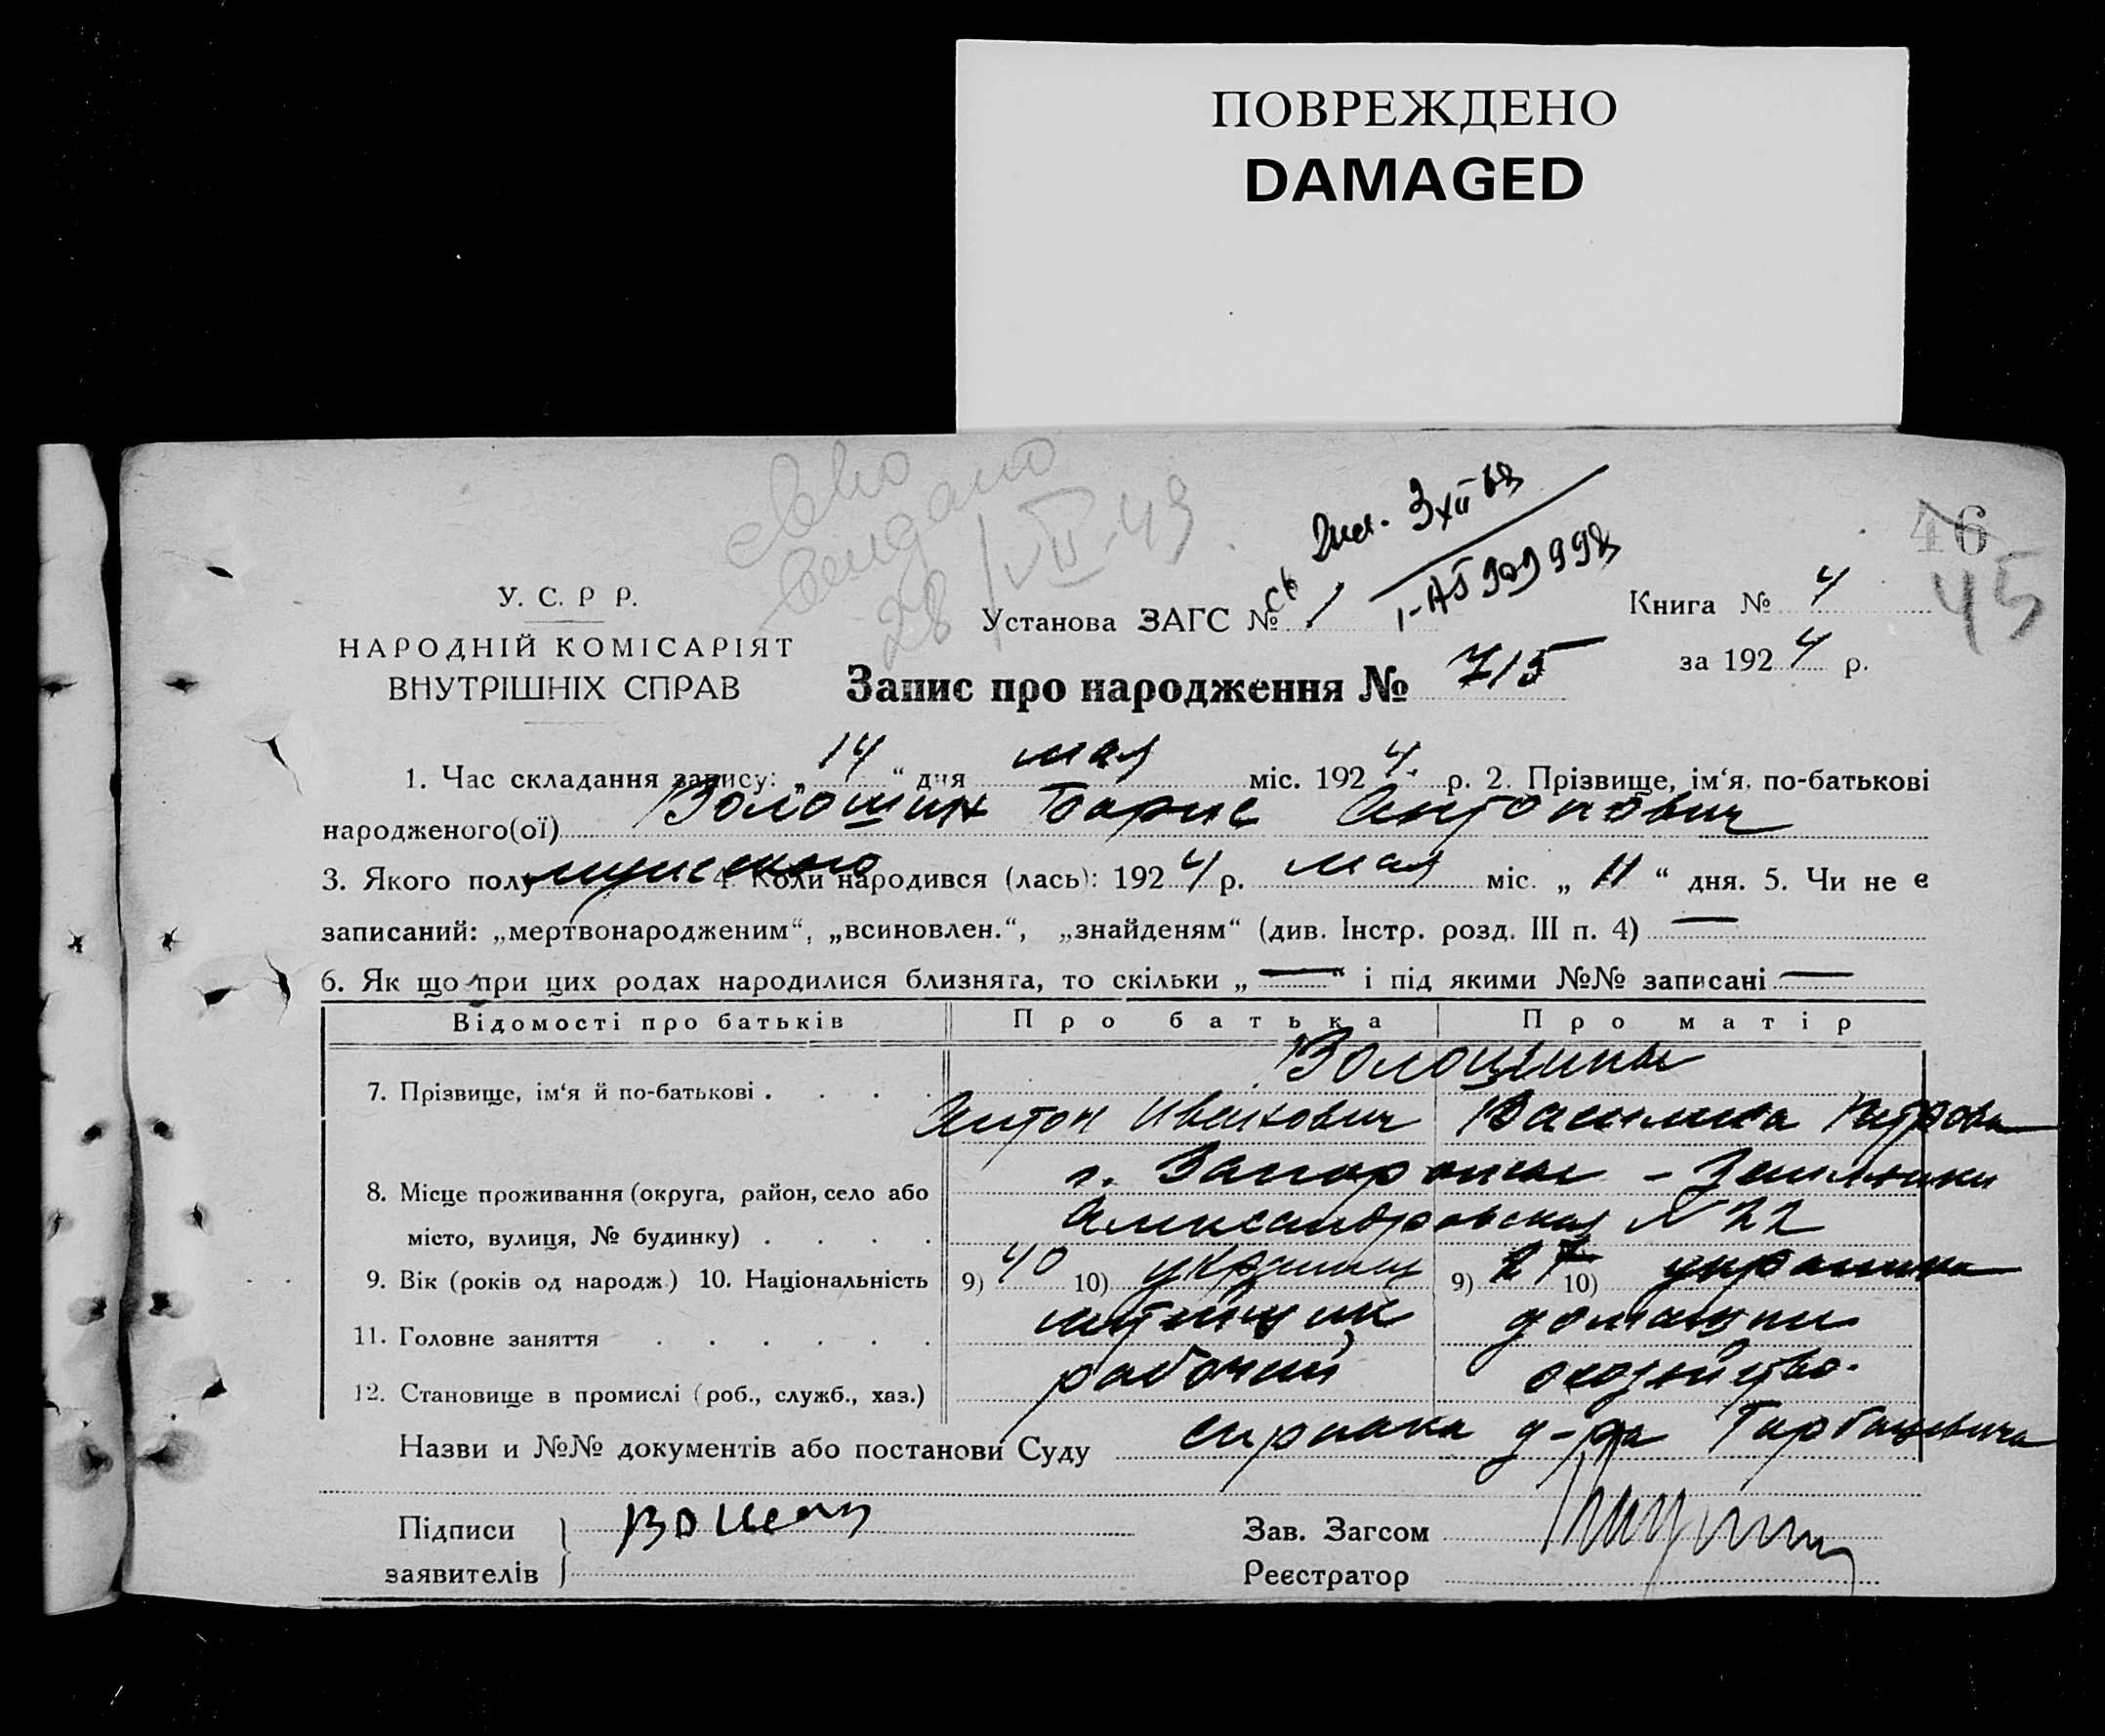 ПОВРЕЖДЕНО
DAMAGED
46
45
28/VII-49
3 XII 68
У. С. Р Р.
НАРОДНІЙ КОМІСАРІЯТ
ВНУТРІШНІХ СПРАВ
Установа ЗАГС № 1
Книга № 4
за 1924 р.
Запис про народження № 715
1. Час складання запису: „14“ дня мая міс. 1924 р. 2. Прізвище, ім‘я, по-батькові
народженого(ої) Волошин Борис Антонович
3. Якого полу мужского 4. Коли народився (лась): 1924 р. мая міс. „11“ дня. 5. Чи не є
записаний: „мертвонародженим“, „всиновлен.“, „знайденям“ (див. Інстр. розд. III п. 4) —
6. Як що при цих родах народилися близняга, то скільки „—“ і під якими №№ записані —
Відомості про батьків Про батька Про матір
7. Прізвище, ім‘я й по-батькові . . . . Волошины
Антон Иванович Василиса Петровна
8. Місце проживання (округа, район, село або
місто, вулиця, № будинку) . . . .
г. Запорожье -
Александровская № 22
9. Вік (років од народж.) 10. Національність 9) 40 10) украинец 9) 27 10) украинка
11. Головне заняття . . . . . . домашнее
12. Становище в промислі (роб., служб., хаз.) рабочий
Назви и №№ документів або постанови Суду справка д-ра
Підписи
заявителів
Зав. Загсом
Реєстратор